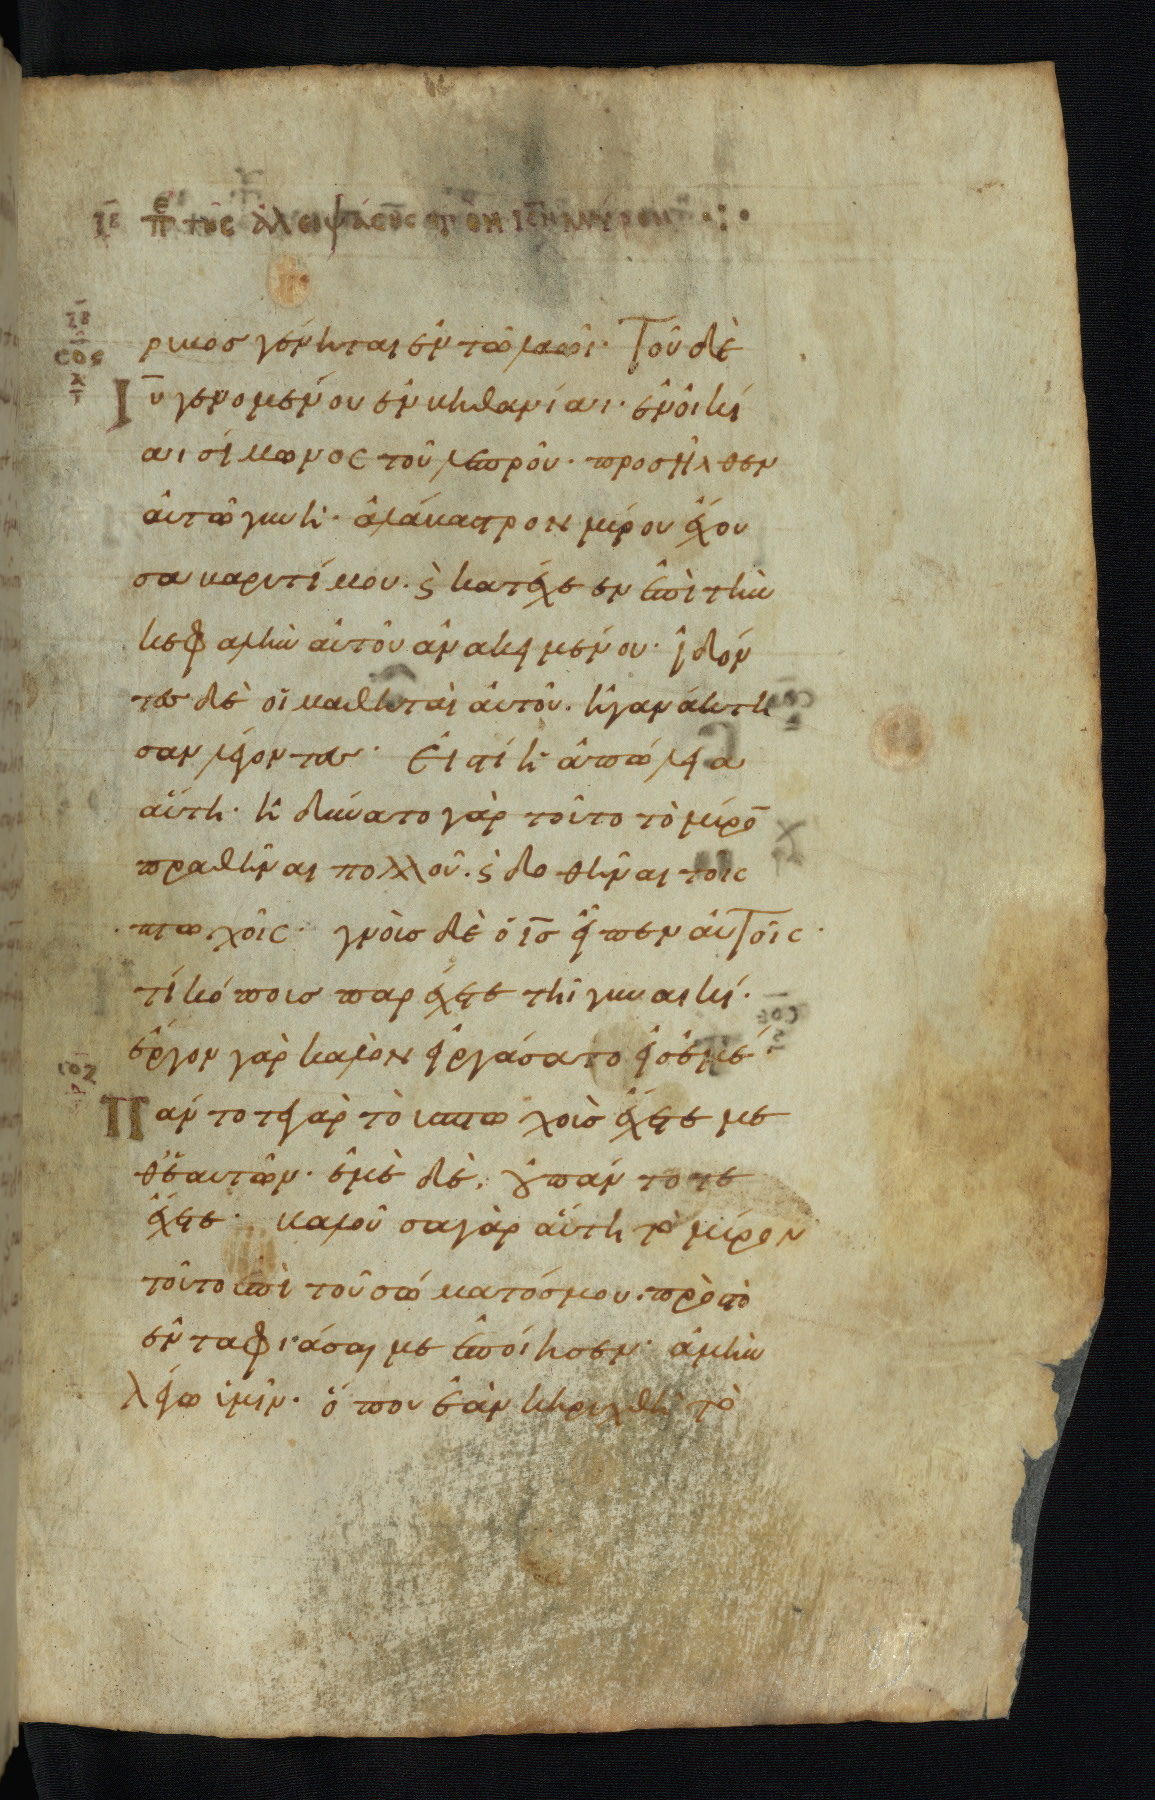 ξε περι της αλειψάσης τον κν μύρωι
ρυβος γένηται ἐν τῶ λαῶι· Τοῦ δὲ
Ιυ γενομένου ἐν βηθανίαι· ἐν οἰκί
αι σίμωνος τοῦ λεπροῦ· προσῆλθεν
αὐτῶ γυνὴ· ἀλάβαστρον μύρου ἔχου
σα βαρυτίμου· ϗ κατέχεεν ἐπὶ τὴν
κεφαλὴν αὐτοῦ ἀνακειμένου· ἰδόν
τες δὲ οἱ μαθηταὶ αὐτοῦ· ἠγανάκτη
σαν λέγοντες· Εἰς τί ἡ ἀπώλεια
αὕτη· ἠδύνατο γὰρ τοῦτο τὸ μύρο̅
πραθῆναι πολλοῦ· ϗ δοθῆναι τοῖς
πτωχοῖς· γνοὺς δὲ ὁ ις εἶπεν αὐτοῖς·
τί κόπους παρέχετε τῆι γυναικί·
ἔργον γὰρ καλὸν εἰργάσατο εἰς ἐμέ·
Πάντοτε γὰρ τοὺς πτωχοὺς ἔχετε με
θ' ἑαυτῶν· ἐμὲ δὲ, οὐ πάντοτε
ἔχετε· βαλοῦσα γὰρ αὕτη τὸ μύρον
τοῦτο ἐπὶ τοῦ σώματός μου· πρὸς τὸ
ἐνταφιάσαι με ἐποίησεν· ἀμὴν
λέγω ὑμῖν· ὅπου ἐὰν κηρυχθῆ τὸ